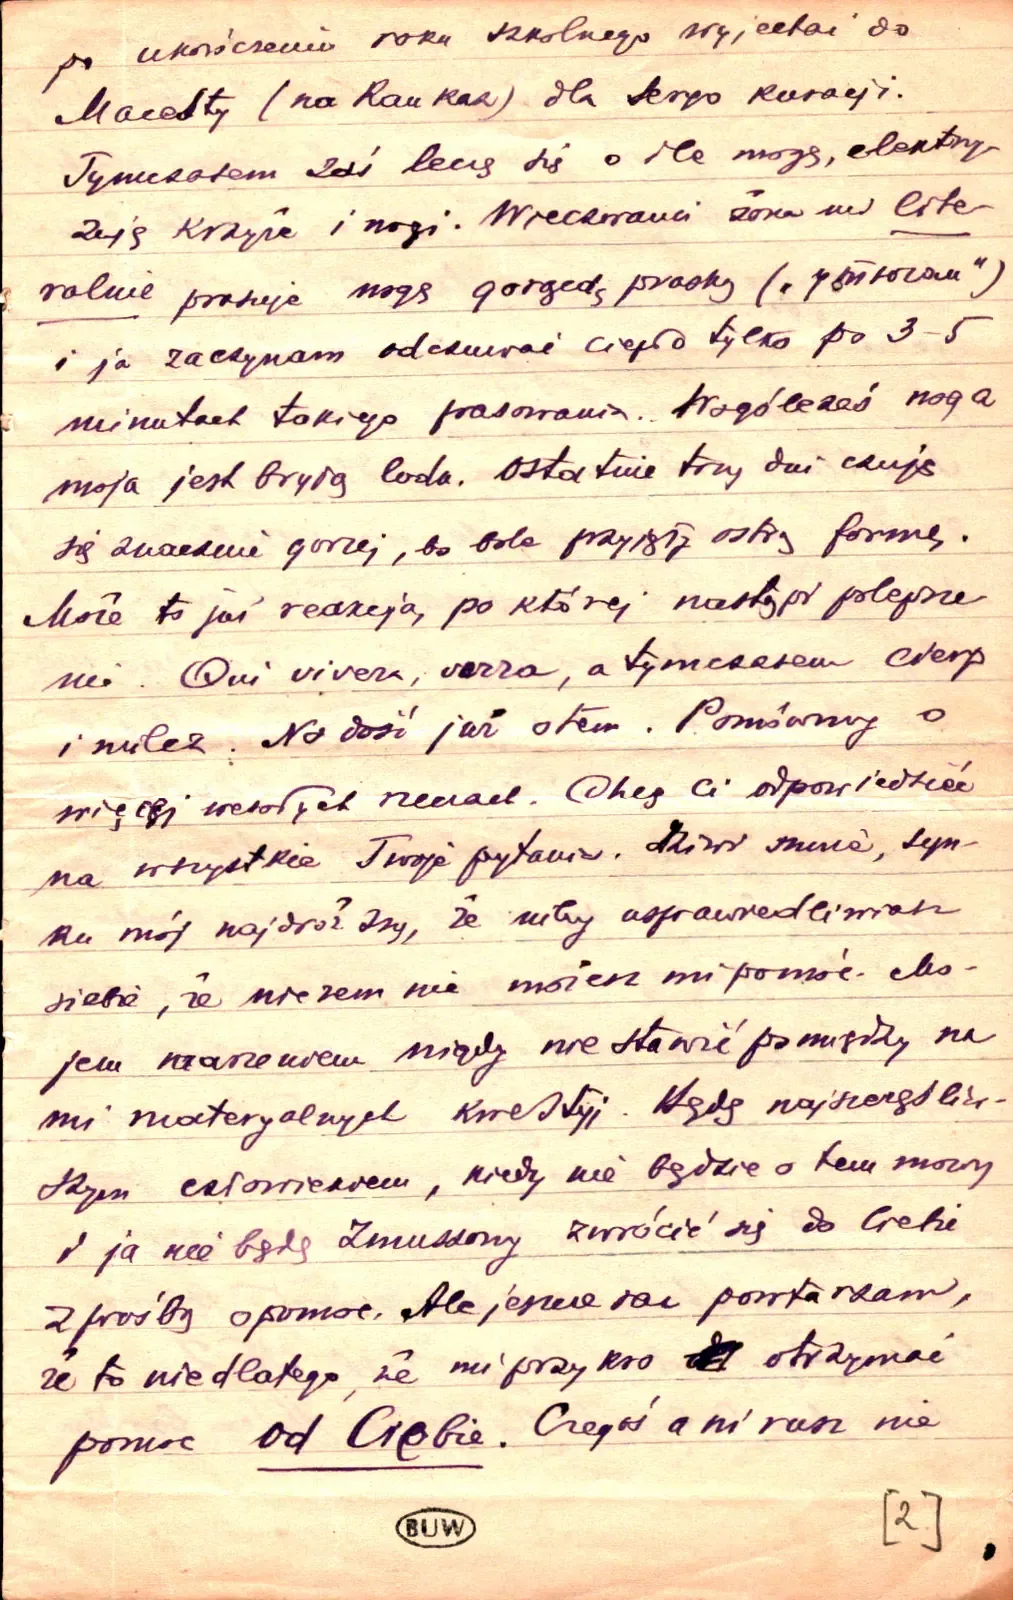 po ukończeniu roku szkolnego wyjechać do
Macesty (na Kaukaz) dla kuracji.
Tymczasem zaś leczę się o ile mogę, elektry-
zuję krzyże i nogi. Wieczorami żona mi lite-
ralnie prasuje nogę gorącą praską
i ja zaczynam odczuwać ciepło tylko po 3-5
minutach takiego prasowania. Wogóle zaś noga
moja jest bryłą lodu. Ostatnie trzy dni czuję
się znacznie gorzej, bo bole przyjęły ostrą formę.
Może to już reakcja, po której nastąpi polepsze-
nie. Qui vivera, verra, a tymczasem cierp
i milcz. No dość już o tem. Pomówmy o
więcej wesołych rzeczach. Chcę Ci odpowiedzieć
na wszystkie Twoje pytania. Dziwi mnie, syn-
ku mój najdroższy, że niby usprawiedliwiasz
siebie, że niczem nie możesz mi pomóc. Mo-
jem marzeniem nigdy nie stawić pomiędzy na
mi materyalnych kwestyj. Będę najszczęśliw-
szym człowiekiem, kiedy nie będzie o tem mowy
i ja nie będę zmuszony zwrócić się do Ciebie
z prośbą o pomoc. Ale jeszcze raz powtarzam,
że to nie dlatego, że mi przykro otrzymać
pomoc od Ciebie. Czegoś ani rusz nie
BUW
[2]